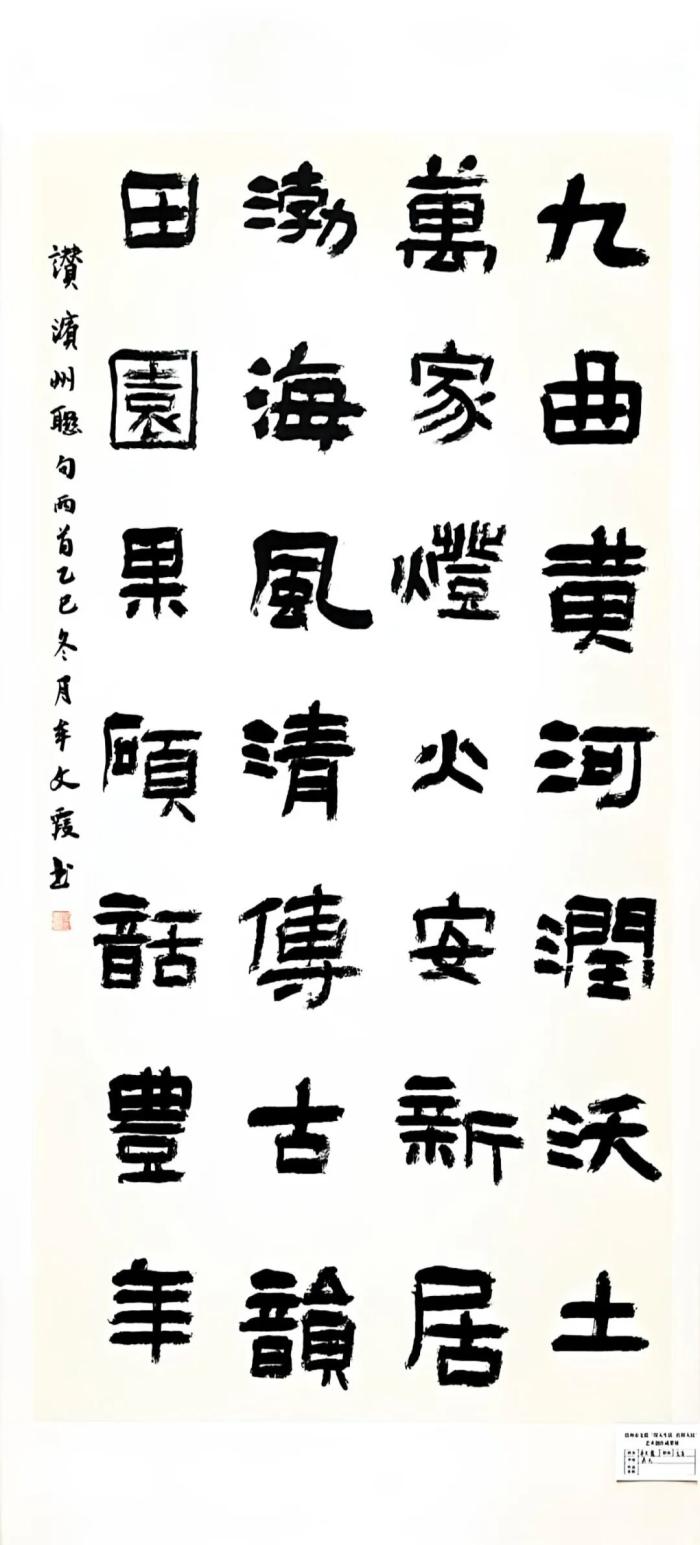 九曲黃河潤沃土
萬家燈火安新居
渤海風清傳古韻
田園果碩話豐年
讃濱州聯句两首乙巳冬月牟文霞书